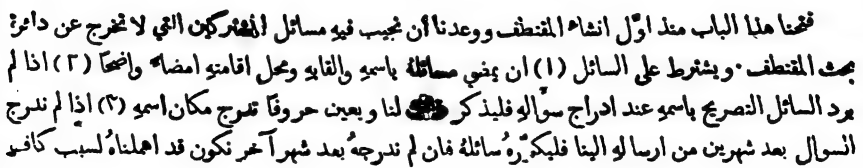 فتحنا هذا الباب منذ اوّل انشاء المقتطف ووعدنا أن نجيب فيه مسائل المشتركين التي لا تخرج عن دائرة
بحث المقتطف. ويشترط على السائل (١) ان يمضي مسائله باسمه والقابه ومحل اقامته امضاء واضحًا (٢) اذا لم
يرد السائل التصريح باسمه عند ادراج سؤاله فليذكر ذلك لنا ويعين حروفًا تدرج مكان اسمه (٣) اذا لم ندرج
السوال بعد شهرين من ارساله الينا فليكرّره سائله فان لم ندرجه بعد شهر آخر نكون قد اهملناه لسبب كافٍ